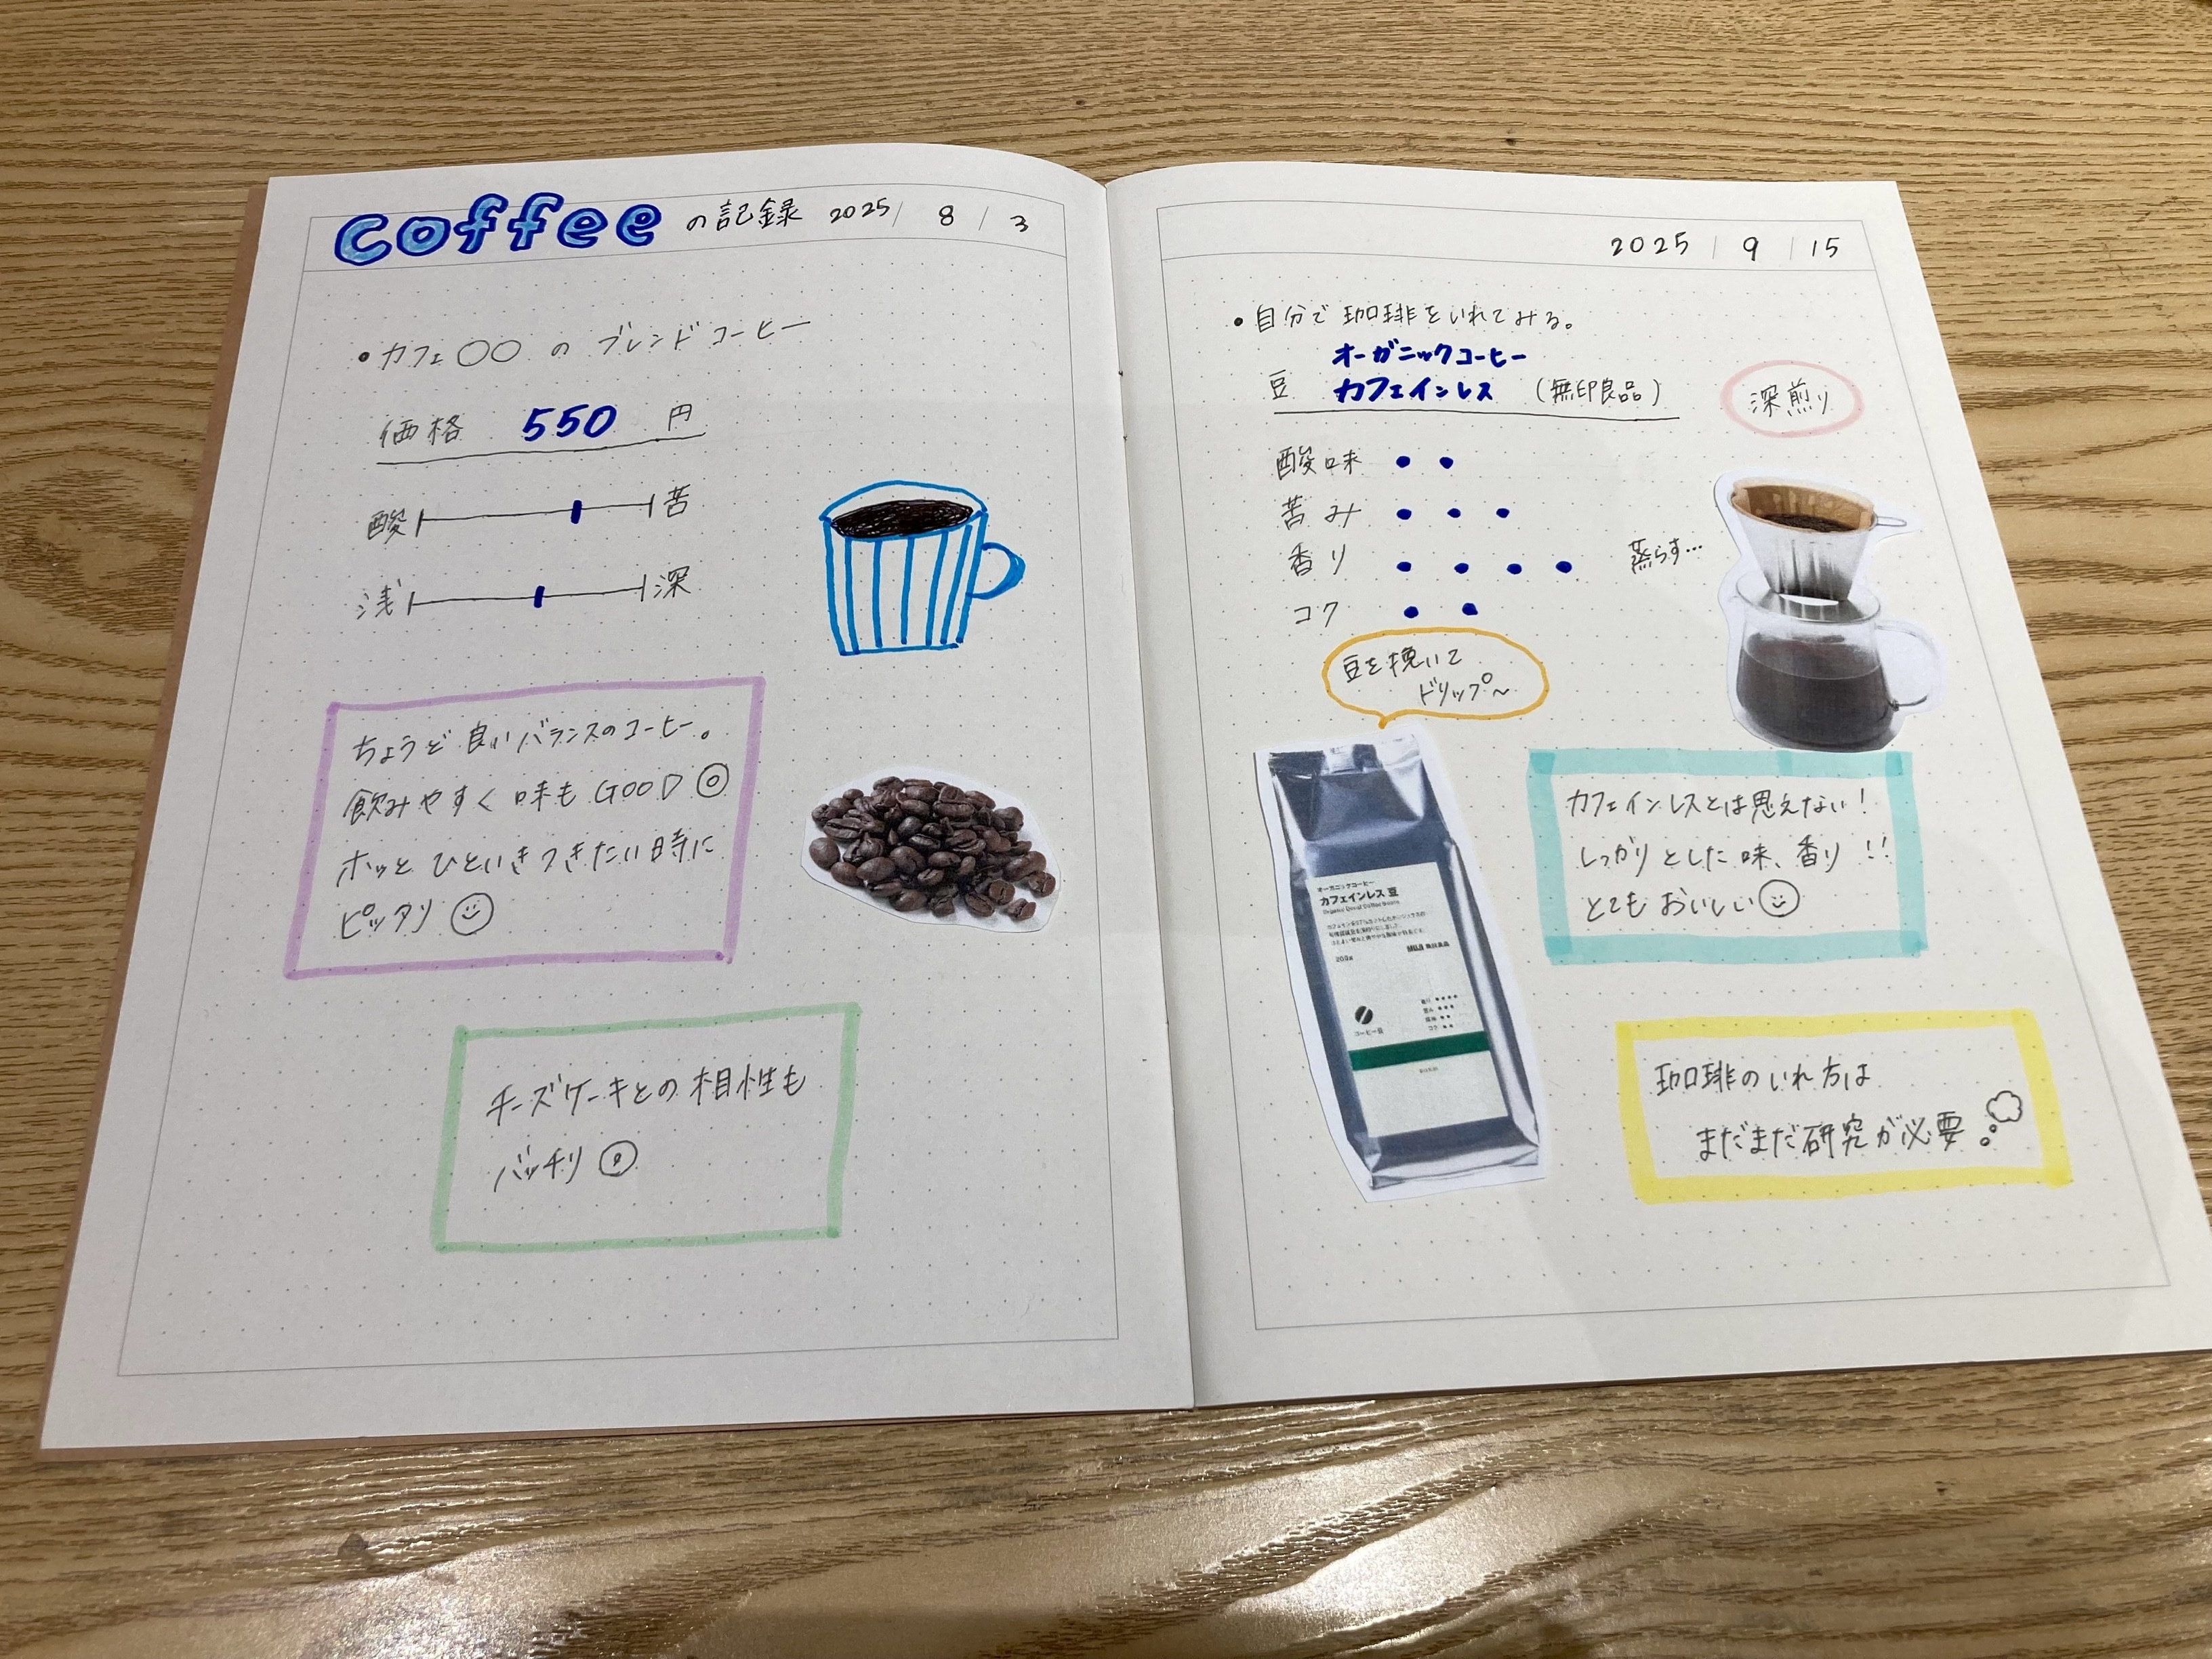 coffee の記録 2025/ 8 / 3
• カフェ〇〇 の ブレンドコーヒー
価格 550 円
酸 苦
浅 深
ちょうど良いバランスのコーヒー。
飲みやすく味も GOOD ◎
ホッと ひといきつきたい時に
ピッタリ
チーズケーキとの相性も
バッチリ ◎
2025 / 9 / 15
• 自分で珈琲をいれてみる。
オーガニックコーヒー
豆 カフェインレス (無印良品)
深煎り
酸味 • •
苦み • • •
香り • • • •
蒸らす…
コク • •
豆を挽いて
ドリップ〜
オーガニックコーヒー
カフェインレス 豆
Organic Decaf Coffee Beans
MUJI 無印良品
200g
香り ●●●●
苦み ●●●
酸味 ●●
コク ●●
コーヒー豆
カフェインレスとは思えない!
しっかりとした味、香り!!
とてもおいしい
珈琲のいれ方は
まだまだ研究が必要